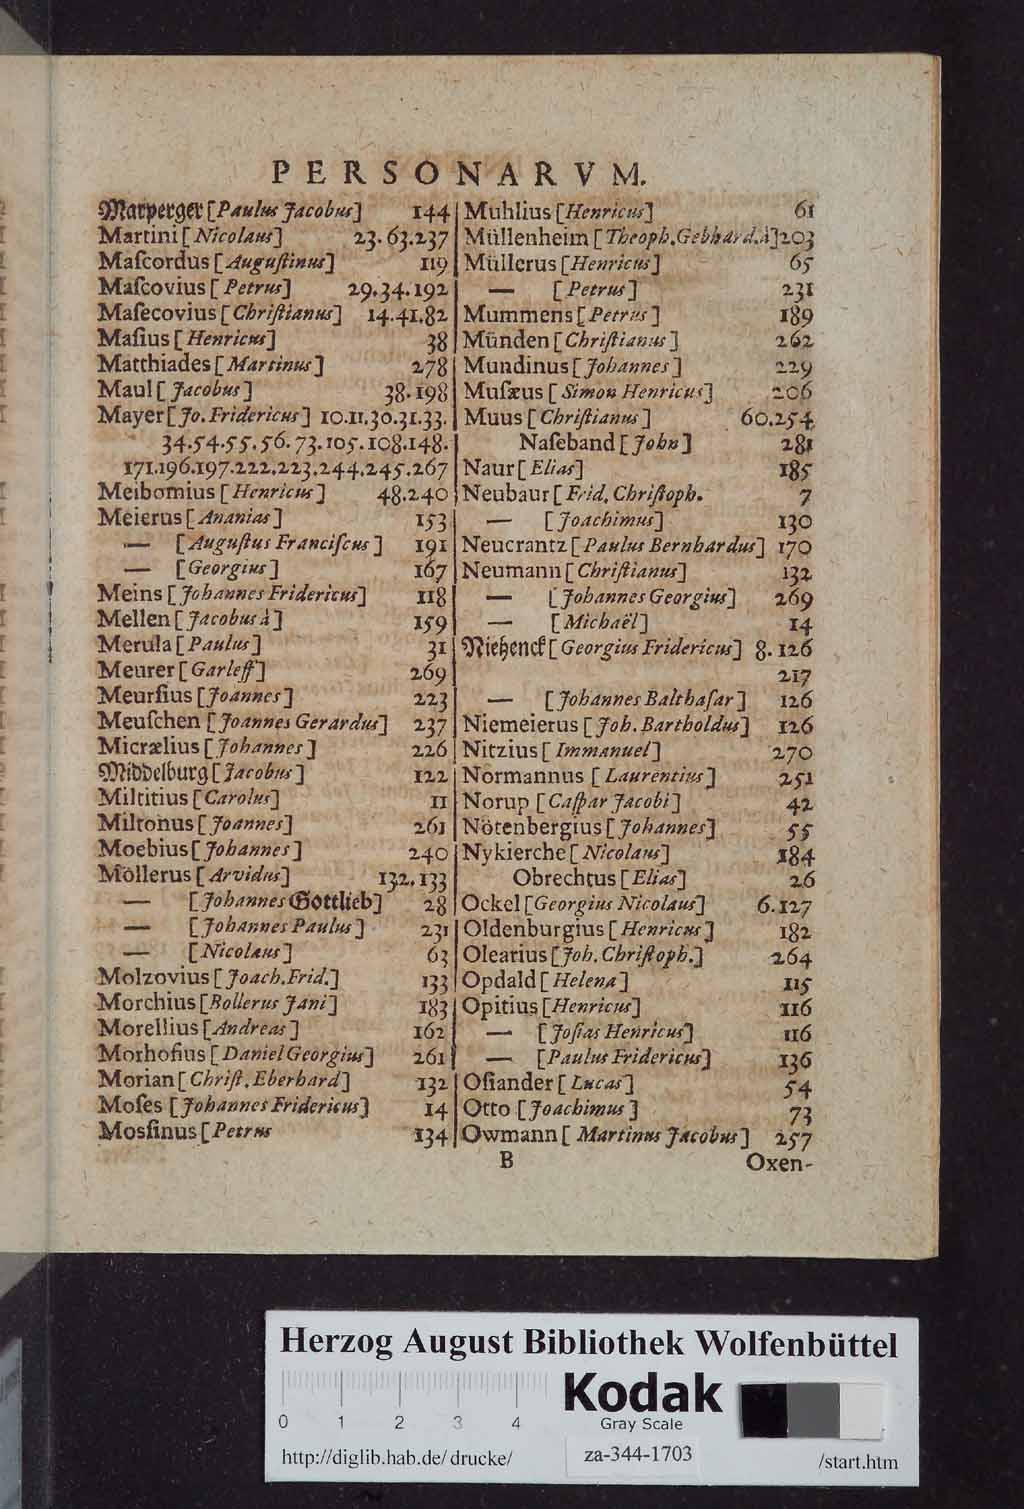 PERSONARVM.
Marperger [Paulus Jacobus] 144
Martini [Nicolaus] 23.63.237
Maſcordus [Auguſtinus] 119
Maſcovius [Petrus] 29.34.192
Maſecovius [Chriſtianus] 14.41.82
Maſius [Henricus] 38
Matthiades [Martinus] 278
Maul [Jacobus] 38.198
Mayer [Jo. Fridericus] 10.11.30.31.33.
34.54.55.56.73.105.108.148.
171.196.197.222.223.244.245.267
Meibomius [Henricus] 48.240
Meierus [Ananias] 153
— [Auguſtus Franciſcus] 191
— [Georgius] 167
Meins [Johannes Fridericus] 118
Mellen [Jacobus à] 159
Merula [Paulus] 31
Meurer [Garleff] 269
Meurſius [Joannes] 223
Meuſchen [Joannes Gerardus] 237
Micrælius [Johannes] 226
Middelburg [Jacobus] 122
Miltitius [Carolus] 11
Miltonus [Joannes] 261
Moebius [Johannes] 240
Möllerus [Arvidus] 132.133
— [Johannes Gottlieb] 28
— [Johannes Paulus] 231
— [Nicolaus] 63
Molzovius [Joach. Frid.] 133
Morchius [Bollerus Jani] 183
Morellius [Andreas] 162
Morhofius [Daniel Georgius] 261
Morian [Chriſt. Eberhard] 132
Moſes [Johannes Fridericus] 14
Mosſinus [Petrus 134
Muhlius [Henricus] 61
Müllenheim [Theoph. Gebhard. à] 203
Müllerus [Henricus] 65
— [Petrus] 231
Mummens [Petrus] 189
Münden [Chriſtianus] 262
Mundinus [Johannes] 229
Muſæus [Simon Henricus] 206
Muus [Chriſtianus] 60.254
Naſeband [John] 281
Naur [Elias] 185
Neubaur [Frid. Chriſtoph. 7
— [Joachimus] 130
Neucrantz [Paulus Bernhardus] 170
Neumann [Chriſtianus] 132
— [Johannes Georgius] 269
— [Michaël] 14
Nietzenck [Georgius Fridericus] 8.126
217
— [Johannes Balthaſar] 126
Niemeierus [Joh. Bartholdus] 126
Nitzius [Immanuel] 270
Normannus [Laurentius] 251
Norup [Caſpar Jacobi] 42
Nötenbergius [Johannes] 55
Nykierche [Nicolaus] 184
Obrechtus [Elias] 26
Ockel [Georgius Nicolaus] 6.127
Oldenburgius [Henricus] 182
Olearius [Joh. Chriſtoph.] 264
Opdald [Helena] 115
Opitius [Henricus] 116
— [Joſias Henricus] 116
— [Paulus Fridericus] 136
Oſiander [Lucas] 54
Otto [Joachimus] 73
Owmann [Martinus Jacobus] 257
B Oxen-
Herzog August Bibliothek Wolfenbüttel
Kodak
Gray Scale
0 1 2 3 4
http://diglib.hab.de/drucke/ za-344-1703 /start.htm